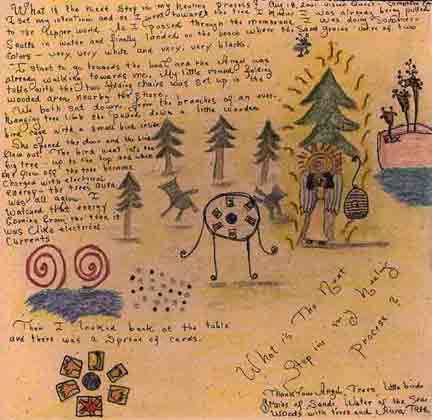 What is the next step in my healing process? Aug 18, 2001
I set my intention and as I went towards
to the upper world. I passed through the membrane I was doing somber
Swirls in water and finally landed on the beach where the sand grains were of two
Colors - very, very white and very, very black.
I start to go towards the boat and the Angel was
already walking towards me. My little round folding
table with the two folding chairs was set up in the
wooded area nearby the shore.
We both sat down. From the branches of an over-
hanging tree limb she pulled down a little wooden
bird cage with a small bird inside
She opened the door and the bird
flew out. The bird went into the
tree, up to the top and when
it flew off the tree became
charged with electrical
energy - the tree's aura
was all aglow. I
watched the energy
coming from the tree. It
was like electrical
currents
Then I looked back at the table
and there was a spread of cards.
What is The Next
Step in my Healing
Process?
Thank You Angel, Trees, little birds
Grains of Sand, Water of the Sea
Woods with trees and Aura Tree